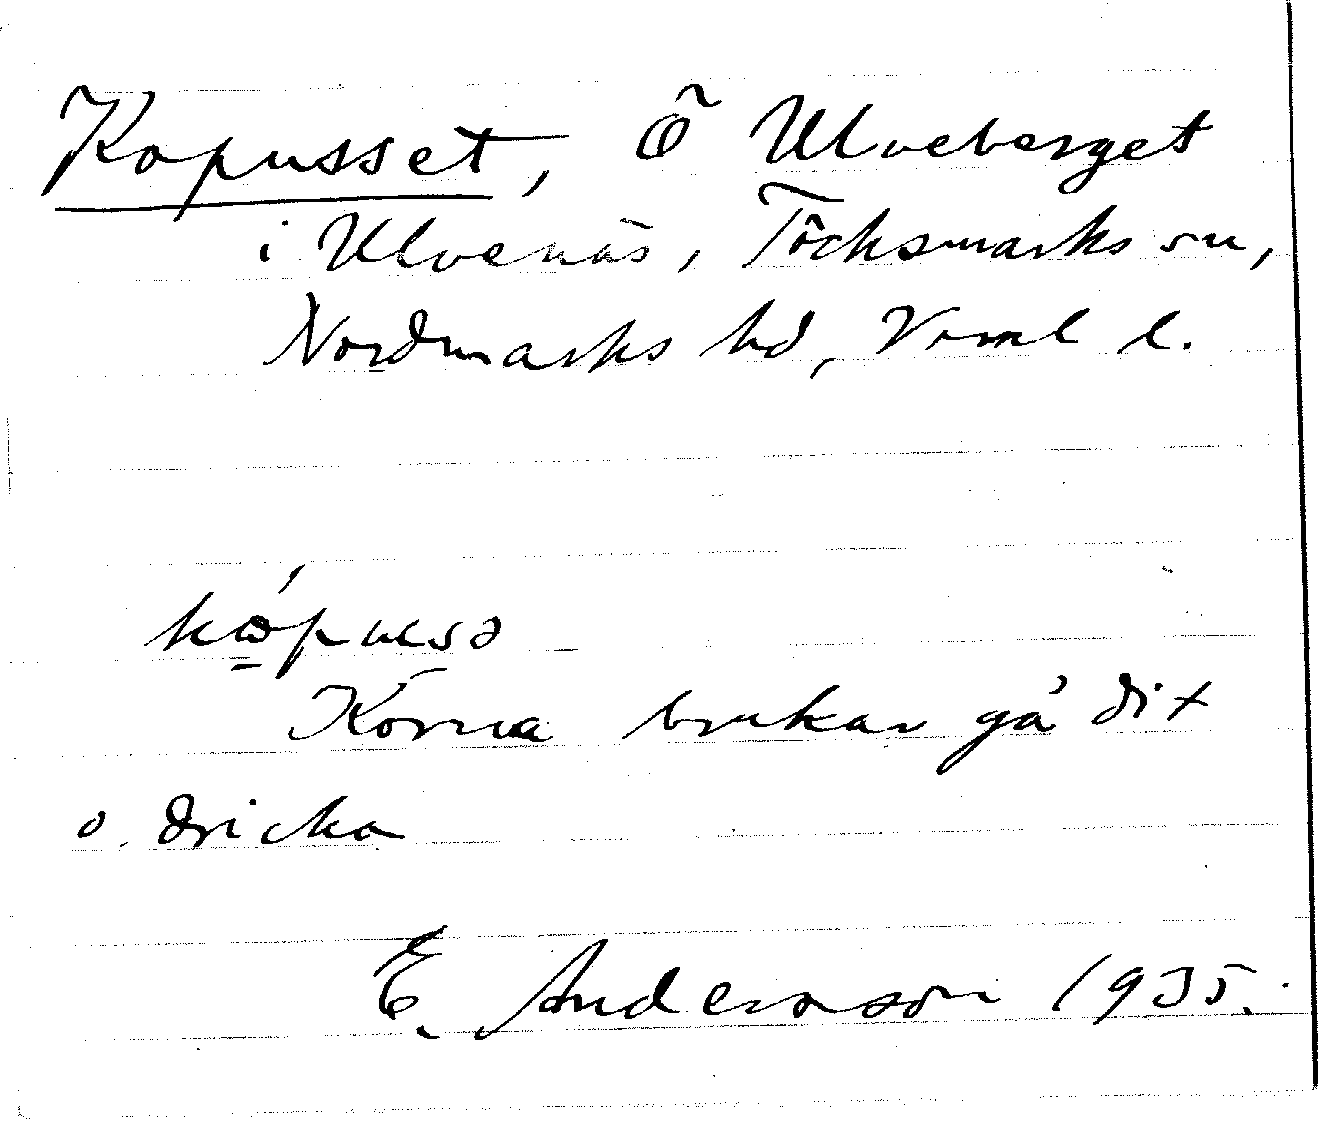 Kopusset, Ö Ulveberget
i Ulvenäs, Töcksmarks sn,
Nordmarks hd, Vrml l.
Korna brukar gå dit
o. dricka
E. Andersson 1935.